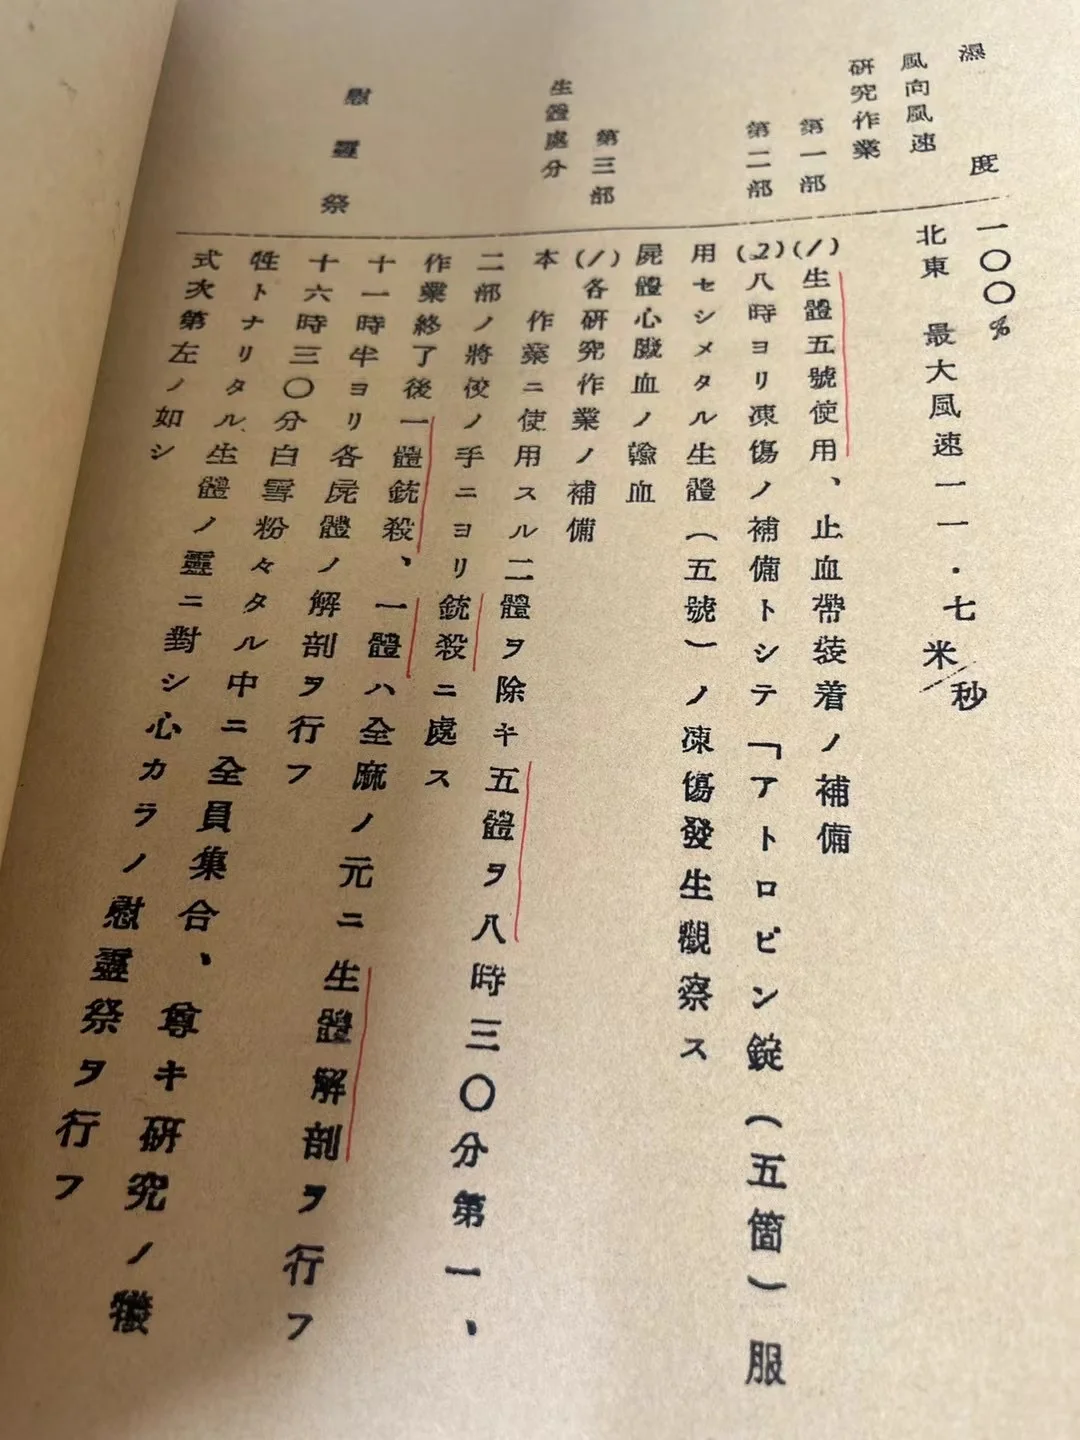 濕度 一〇〇%
風向風速 北東 最大風速一一・七米/秒
研究作業
第一部 (1)生體五號使用、止血帶裝着ノ補備
第二部 (2)八時ヨリ凍傷ノ補備トシテ「アトロピン錠(五箇)服
用セシメタル生體(五號)ノ凍傷發生觀察ス
屍體心臟血ノ輸血
第三部 (1)各研究作業ノ補備
生體處分 本作業ニ使用スル二體ヲ除キ五體ヲ八時三〇分第一、
二部ノ將校ノ手ニヨリ銃殺ニ處ス
作業終了後一體銃殺、一體ハ全麻ノ元ニ生體解剖ヲ行フ
十一時半ヨリ各屍體ノ解剖ヲ行フ
慰靈祭 十六時三〇分白雪粉々タル中ニ全員集合、尊キ研究ノ犧
牲トナリタル生體ノ靈ニ對シ心カラノ慰靈祭ヲ行フ
式次第左ノ如シ